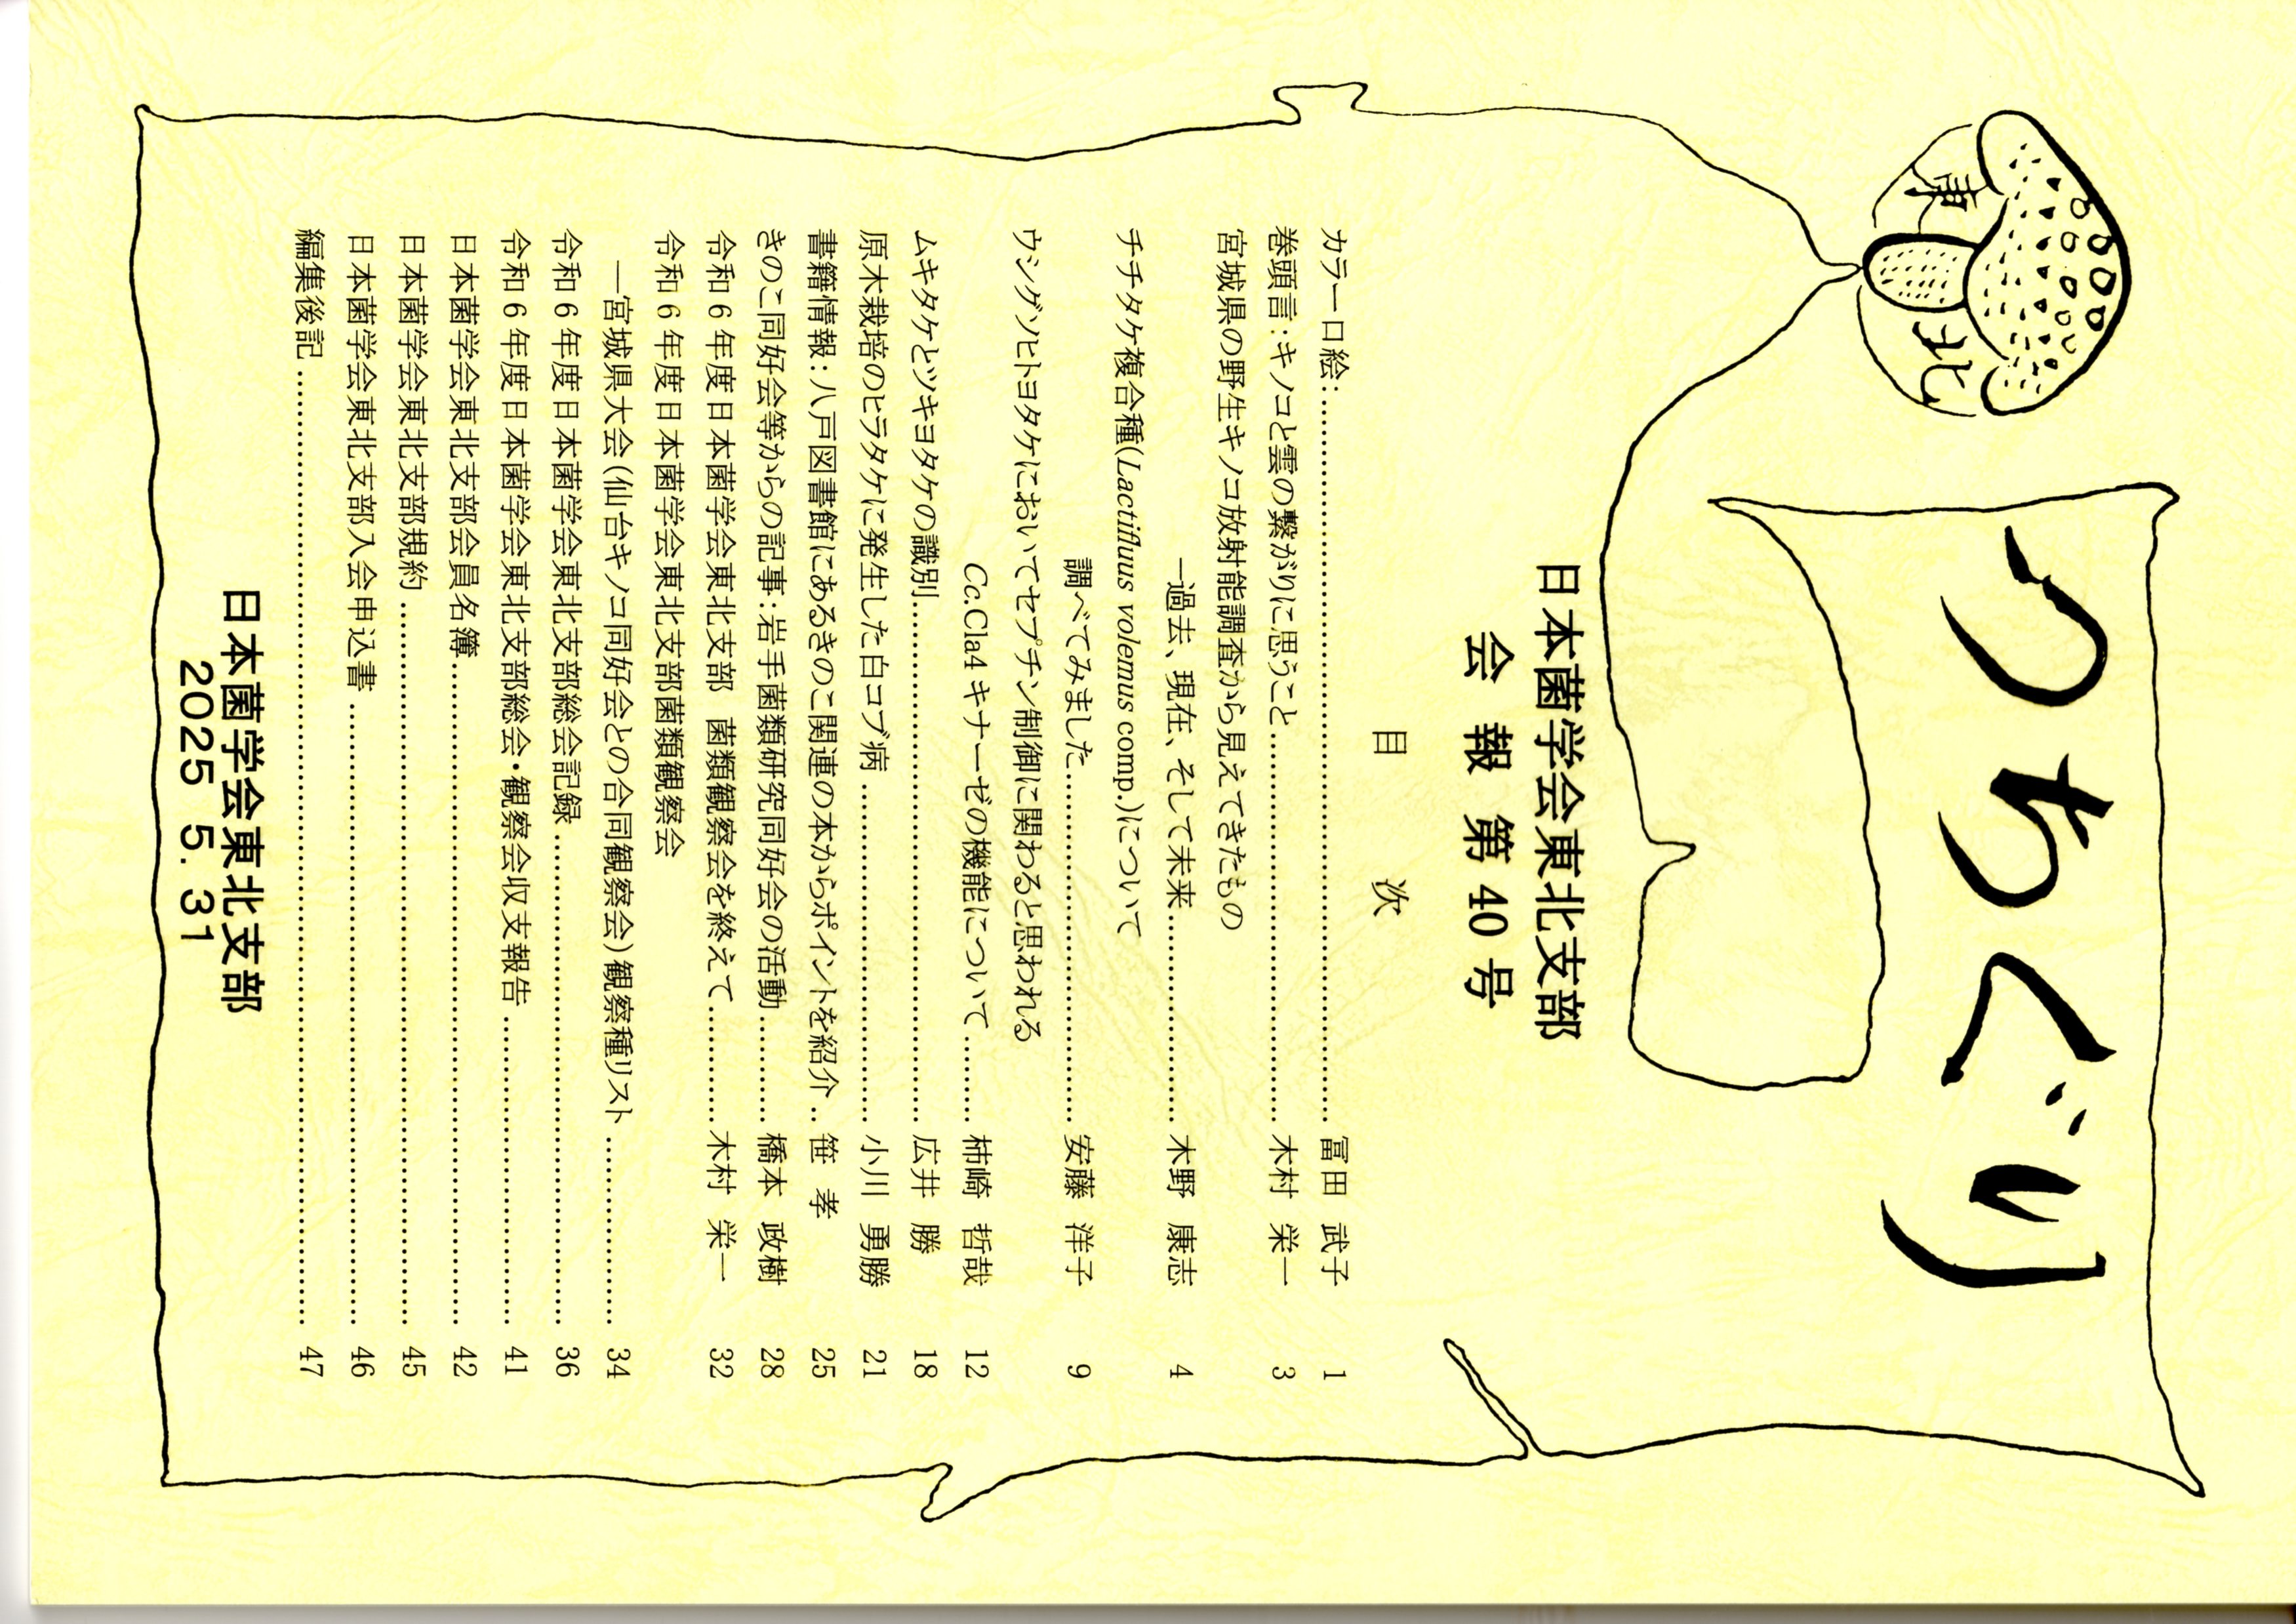 東北
つちくり
日本菌学会東北支部
会報 第40号
目 次
カラー口絵:…………………………………………冨田 武子 1
巻頭言:キノコと雲の繋がりに思うこと……………………木村 栄一 3
宮城県の野生キノコ放射能調査から見えてきたもの
―過去、現在、そして未来……………………木野 康志 4
チチタケ複合種(Lactifluus volemus comp.)について
調べてみました……………………安藤 洋子 9
ウシグソヒトヨタケにおいてセプチン制御に関わると思われる
Cc.Cla4 キナーゼの機能について………柿崎 哲哉 12
ムキタケとツキヨタケの識別……………………………広井 勝 18
原木栽培のヒラタケに発生した白コブ病……………………小川 勇勝 21
書籍情報:八戸図書館にあるきのこ関連の本からポイントを紹介‥笹 孝 25
きのこ同好会等からの記事:岩手菌類研究同好会の活動………橋本 政樹 28
令和6年度日本菌学会東北支部 菌類観察会を終えて………木村 栄一 32
令和6年度日本菌学会東北支部菌類観察会
―宮城県大会(仙台キノコ同好会との合同観察会)観察種リスト……………34
令和6年度日本菌学会東北支部総会記録……………………………36
令和6年度日本菌学会東北支部総会・観察会収支報告……………………41
日本菌学会東北支部会員名簿……………………………………42
日本菌学会東北支部規約………………………………………45
日本菌学会東北支部入会申込書…………………………………46
編集後記……………………………………………………47
日本菌学会東北支部
2025 5. 31